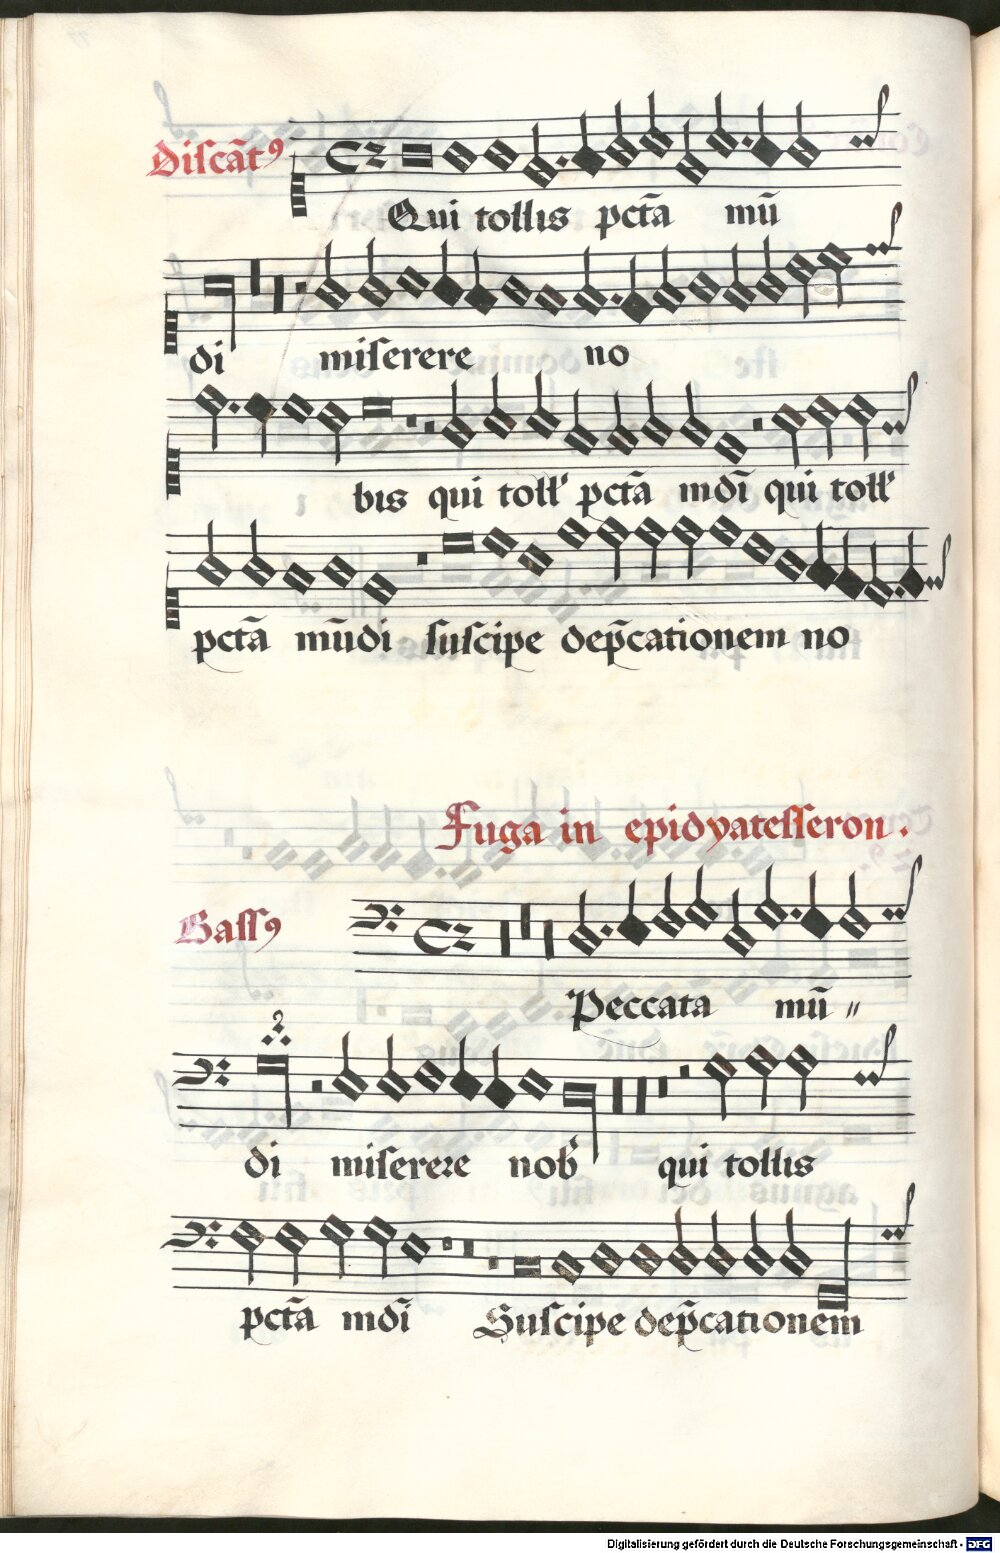 Discāt⁹
Qui tollis pctā mū
di miserere no
bis qui toll' pctā mdī qui toll'
pctā mūdi suscipe dep̄cationem no
Fuga in epidyatesseron.
Bass⁹
Peccata mū〃
di miserere nob' qui tollis
pctā mdī Suscipe dep̄cationem
Digitalisierung gefördert durch die Deutsche Forschungsgemeinschaft - DFG